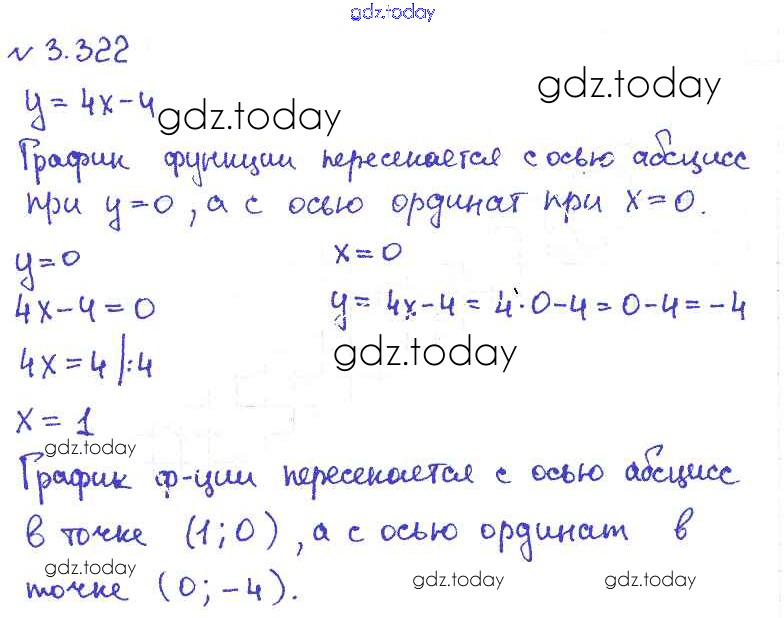 gdz.today
№ 3.322
y = 4x - 4
gdz.today
gdz.today
График функции пересекается с осью абсцисс
при y = 0, а с осью ординат при x = 0.
y = 0
x = 0
4x - 4 = 0
y = 4x - 4 = 4 · 0 - 4 = 0 - 4 = -4
4x = 4 |:4
gdz.today
x = 1
gdz.today
График ф-ции пересекается с осью абсцисс
в точке (1; 0), а с осью ординат в
gdz.today
точке (0; -4).
gdz.today
gdz.today